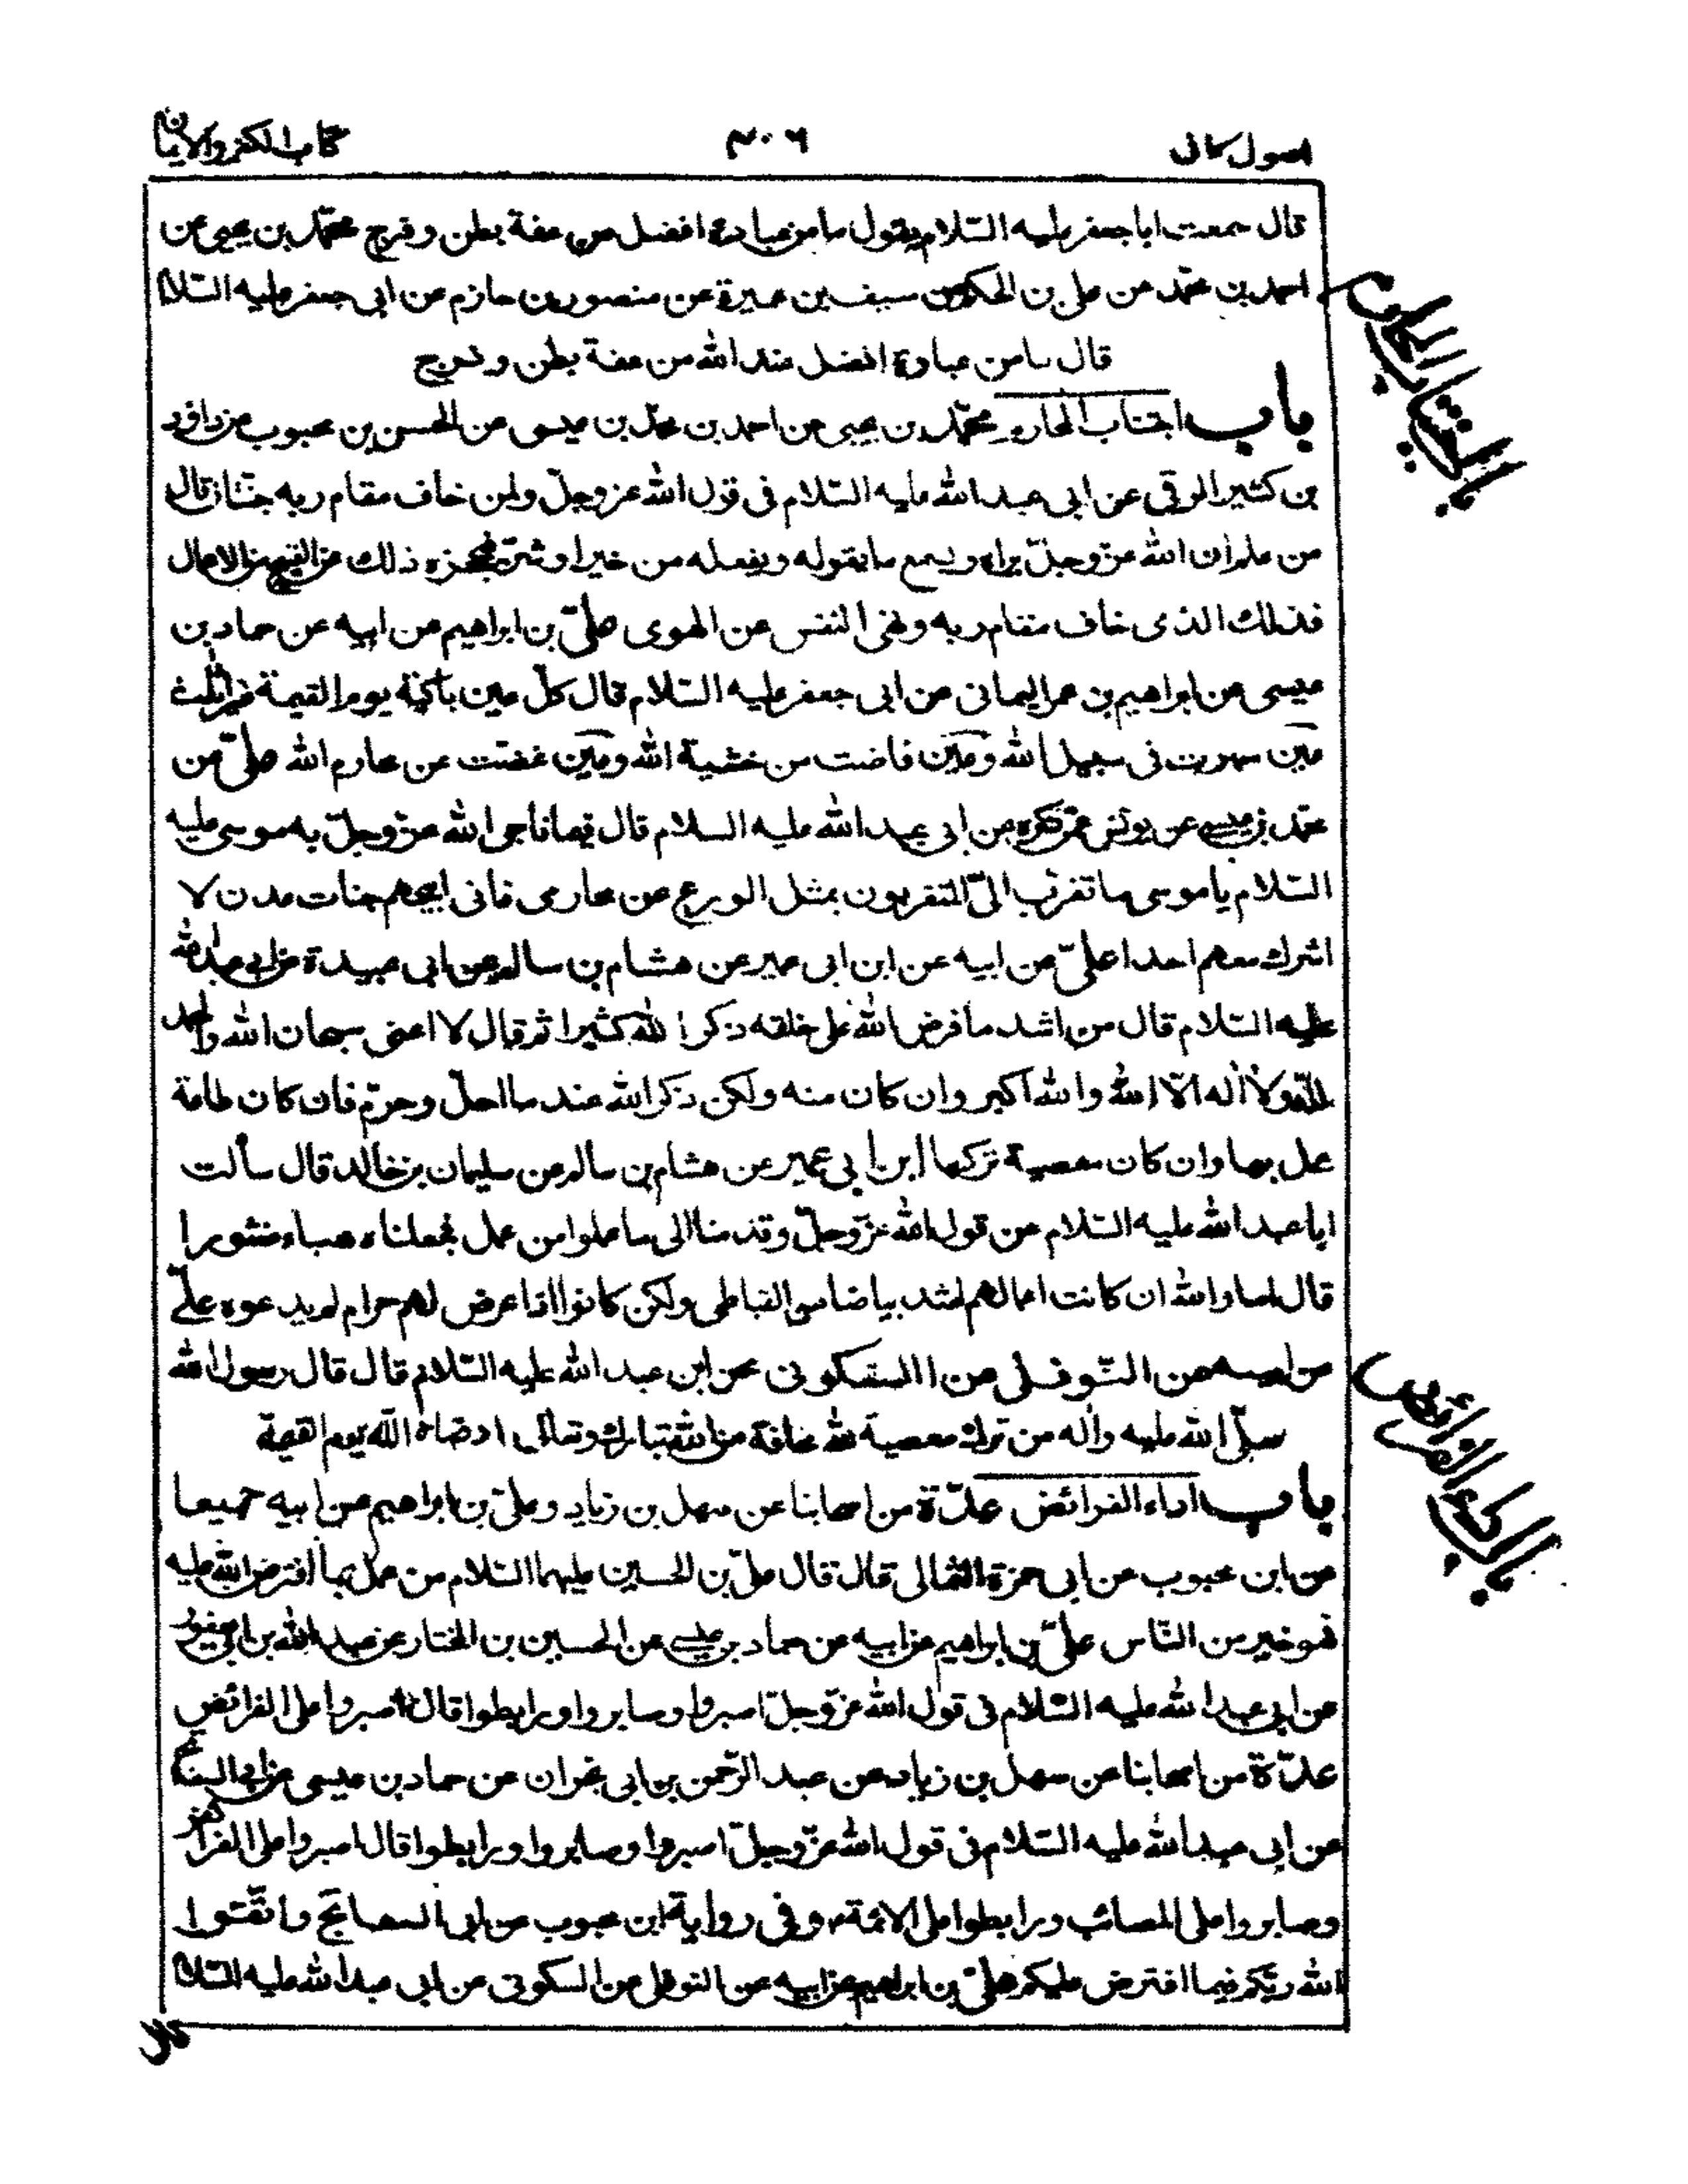 اصول كافى
٣٠٦
كتاب الكفر والايمان
قال سمعت ابا جعفر عليه السّلام يقول ما من عبادة افضل من عفة بطن وفرج محمّد بن يحيى عن
احمد بن محمّد عن على بن الحكم عن سيف بن عميرة عن منصور بن حازم عن ابى جعفر عليه السّلام
قال ما من عبادة افضل عند الله من عفة بطن وفرج
باب اجتناب المحارم
باب اجتناب المحارم محمّد بن يحيى عن احمد بن محمّد بن عيسى عن الحسن بن محبوب عن داود
بن كثير الرقى عن ابى عبد الله عليه السّلام فى قول الله عز وجلّ ولمن خاف مقام ربه جنّتان قال
من علم ان الله عزّ وجلّ يراه ويسمع ما يقوله ويفعله من خير او شرّ فيحجزه ذلك عن القبيح من الاعمال
فذلك الذى خاف مقام ربه ونهى النفس عن الهوى علىّ بن ابراهيم عن ابيه عن حماد بن
عيسى عن ابراهيم بن عمر اليمانى عن ابى جعفر عليه السّلام قال كلّ عين باكية يوم القيمة غير ثلث
عين سهرت فى سبيل الله وعين فاضت من خشية الله وعين غضّت عن محارم الله علىّ عن
محمّد بن عيسى عن يونس عمّن ذكره عن ابى عبد الله عليه السلام قال فيما ناجى الله عزّ وجلّ به موسى عليه
السّلام يا موسى ما تقرّب الىّ المتقربون بمثل الورع عن محارمى فانى ابيحهم جنات عدن لا
اشرك معهم احدا علىّ عن ابيه عن ابن ابى عمير عن هشام بن سالم عن ابى عبيدة عن ابى عبد الله
عليه السّلام قال من اشد ما فرض الله على خلقه ذكر الله كثيرا ثم قال لا اعنى سبحان الله والحمد
للّه ولا اله الّا الله والله اكبر وان كان منه ولكن ذكر الله عند ما احلّ وحرّم فان كان طاعة
عمل بها وان كان معصية تركها ابن ابى عمير عن هشام بن سالم عن سليمان بن خالد قال سألت
ابا عبد الله عليه السّلام عن قول الله عزّ وجلّ وقدمنا الى ما عملوا من عمل فجعلناه هباء منثورا
قال اما والله ان كانت اعمالهم اشد بياضا من القباطى ولكن كانوا اذا عرض لهم حرام لم يدعوه علىّ
عن ابيه عن النّوفلى عن السّكونى عن ابى عبد الله عليه السّلام قال قال رسول الله
صلّى الله عليه واله من ترك معصية لله مخافة من الله تبارك وتعالى ارضاه اللّه يوم القيمة
باب اداء الفرائض
باب اداء الفرائض عدّة من اصحابنا عن سهل بن زياد وعلىّ بن ابراهيم عن ابيه جميعا
عن ابن محبوب عن ابى حمزة الثمالى قال قال علىّ بن الحسين عليهما السّلام من عمل بما افترض الله عليه
فهو خير من النّاس علىّ بن ابراهيم عن ابيه عن حماد بن عيسى عن الحسين بن المختار عن عبد الله بن ابى يعفور
عن ابى عبد الله عليه السّلام فى قول الله عزّ وجلّ اصبروا وصابروا ورابطوا قال اصبروا على الفرائض
عدّة من اصحابنا عن سهل بن زياد عن عبد الرّحمن بن ابى نجران عن حماد بن عيسى عن ابى السفاتج
عن ابى عبد الله عليه السّلام فى قول الله عزّ وجلّ اصبروا وصابروا ورابطوا قال اصبروا على الفرائض
وصابروا على المصائب ورابطوا على الائمّة وفى رواية ابن محبوب عن ابى السفاتج واتّقوا
الله ربّكم فيما افترض عليكم علىّ بن ابراهيم عن ابيه عن النوفلى عن السكونى عن ابى عبد الله عليه السّلام
قال